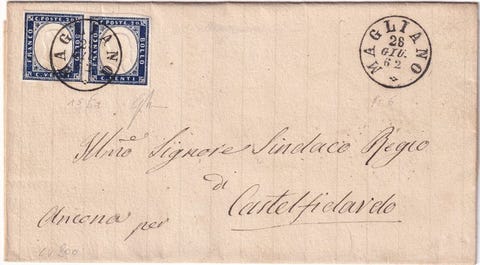 C. POSTE 20
FRANCO
BOLLO
C. VENTI
C. POSTE 20
FRANCO
BOLLO
C. VENTI
MAGLIANO
MAGLIANO
28
GIU.
62
Illmo Signore Sindaco Regio
di
Castelfidardo
Ancona per